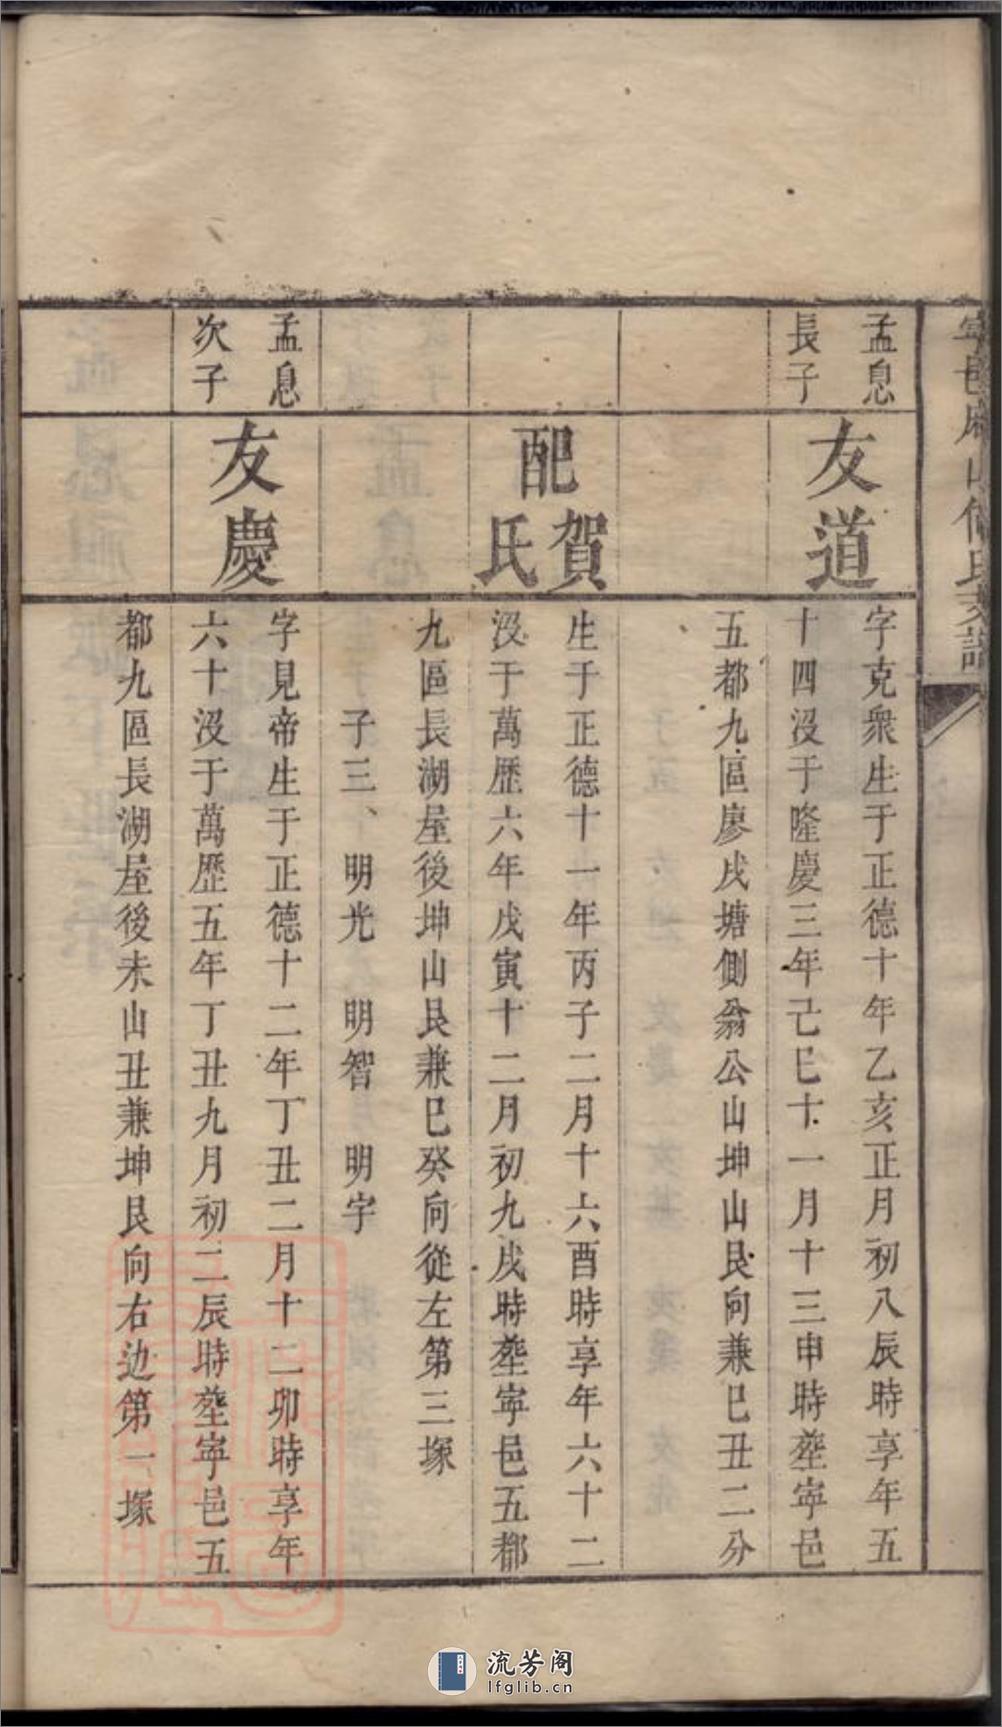 孟息
長子
友道
字克衆生于正德十年乙亥正月初八辰時享年五
十四没于隆慶三年己巳十一月十三申時塟寧邑
五都九區廖戌塘側翁公山坤山艮向兼巳丑二分
配賀氏
生于正德十一年丙子二月十六酉時享年六十二
没于萬歷六年戊寅十二月初九戌時塟寧邑五都
九區長湖屋後坤山艮兼巳癸向從左第三塚
子三、 明光 明智 明宇
孟息
次子
友慶
字見帝生于正德十二年丁丑二月十二卯時享年
六十没于萬歷五年丁丑九月初二辰時塟寧邑五
都九區長湖屋後未山丑兼坤艮向右边第一塚
流芳阁
lfglib.cn